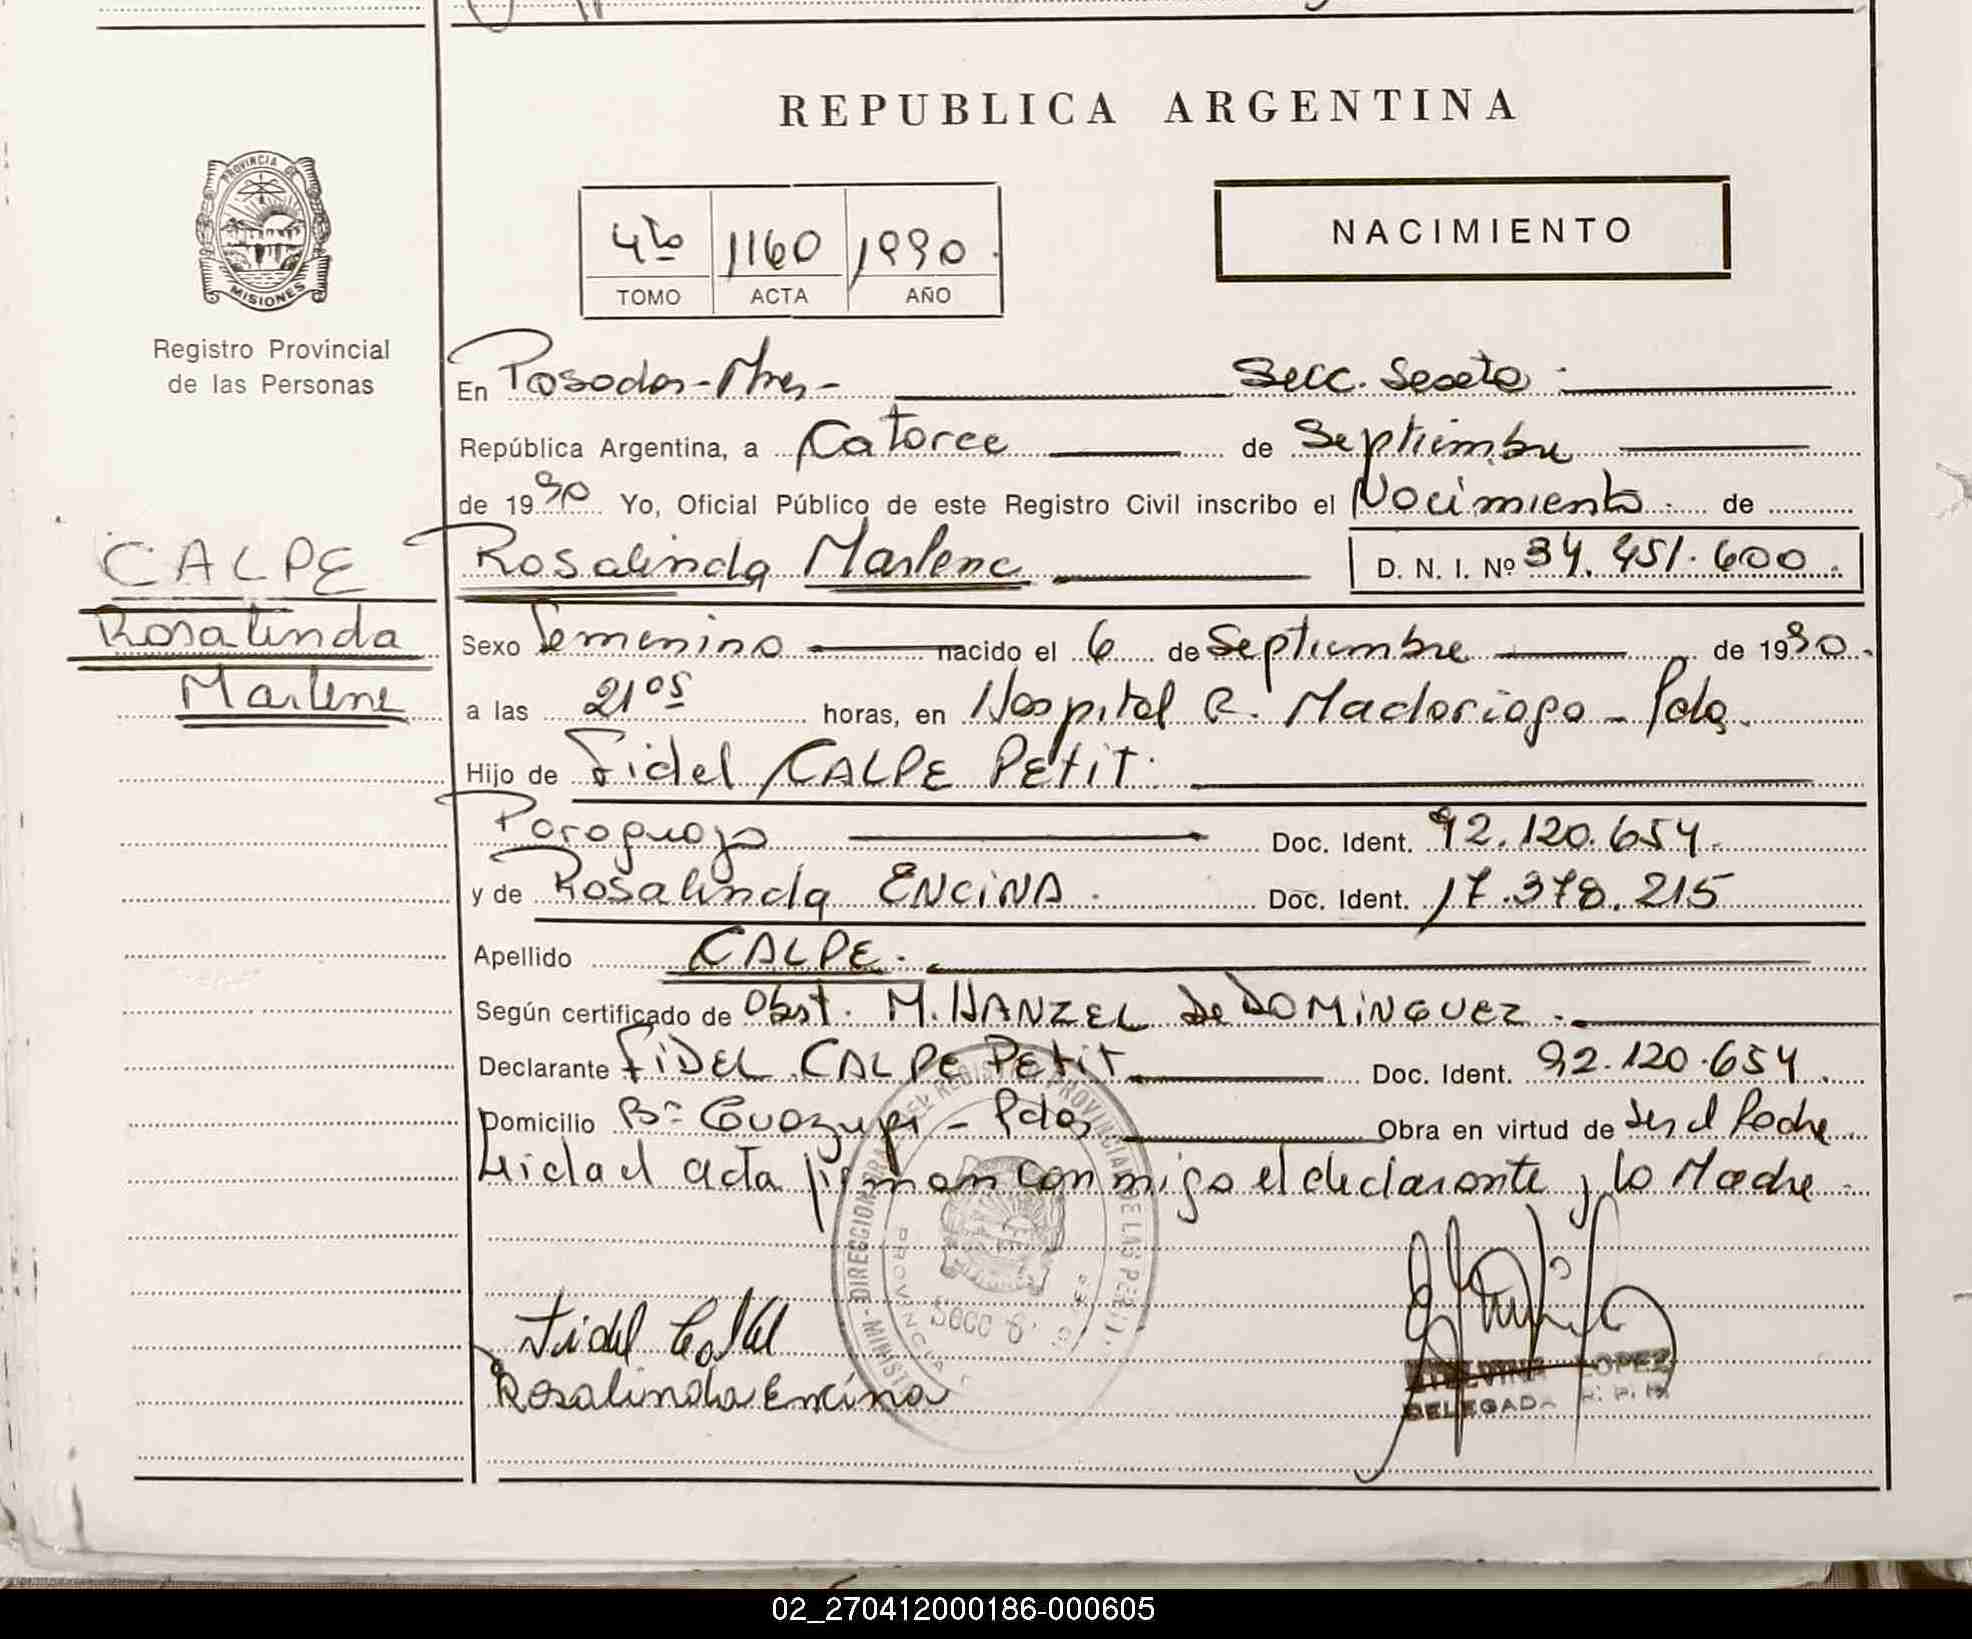 REPUBLICA ARGENTINA
PROVINCIA DE
MISIONES
Registro Provincial
de las Personas
4to 1160 1990.
TOMO ACTA AÑO
NACIMIENTO
En Posadas-Mnes- Secc. Sexta.
República Argentina, a Catorce de Septiembre
de 1990 Yo, Oficial Público de este Registro Civil inscribo el Nacimiento. de
CALPE
Rosalinda
Marlene
Rosalinda Marlene D. N. I. Nº 34.451.600.
Sexo Femenino nacido el 6 de Septiembre de 1990.
a las 21 05 horas, en Hospital R. Madariaga - Pdas.
Hijo de Fidel CALPE PETIT.
Paraguayo Doc. Ident. 92.120.654.
y de Rosalinda ENCINA. Doc. Ident. 17.378.215
Apellido CALPE.
Según certificado de Obst. M. HANZEL De DOMINGUEZ.
Declarante FIDEL CALPE PETIT Doc. Ident. 92.120.654.
Domicilio Bº Guazupi - Pdas Obra en virtud de Ser el Padre
Leida el acta firman conmigo el declarante y la Madre.
DIRECCION REGISTRO PROVINCIAL DE LAS PERS
PROVINCIA
SECC 6
Fidel
Rosalinda Encina
LOPEZ
DELEGADA R. P. P.
02_270412000186-000605